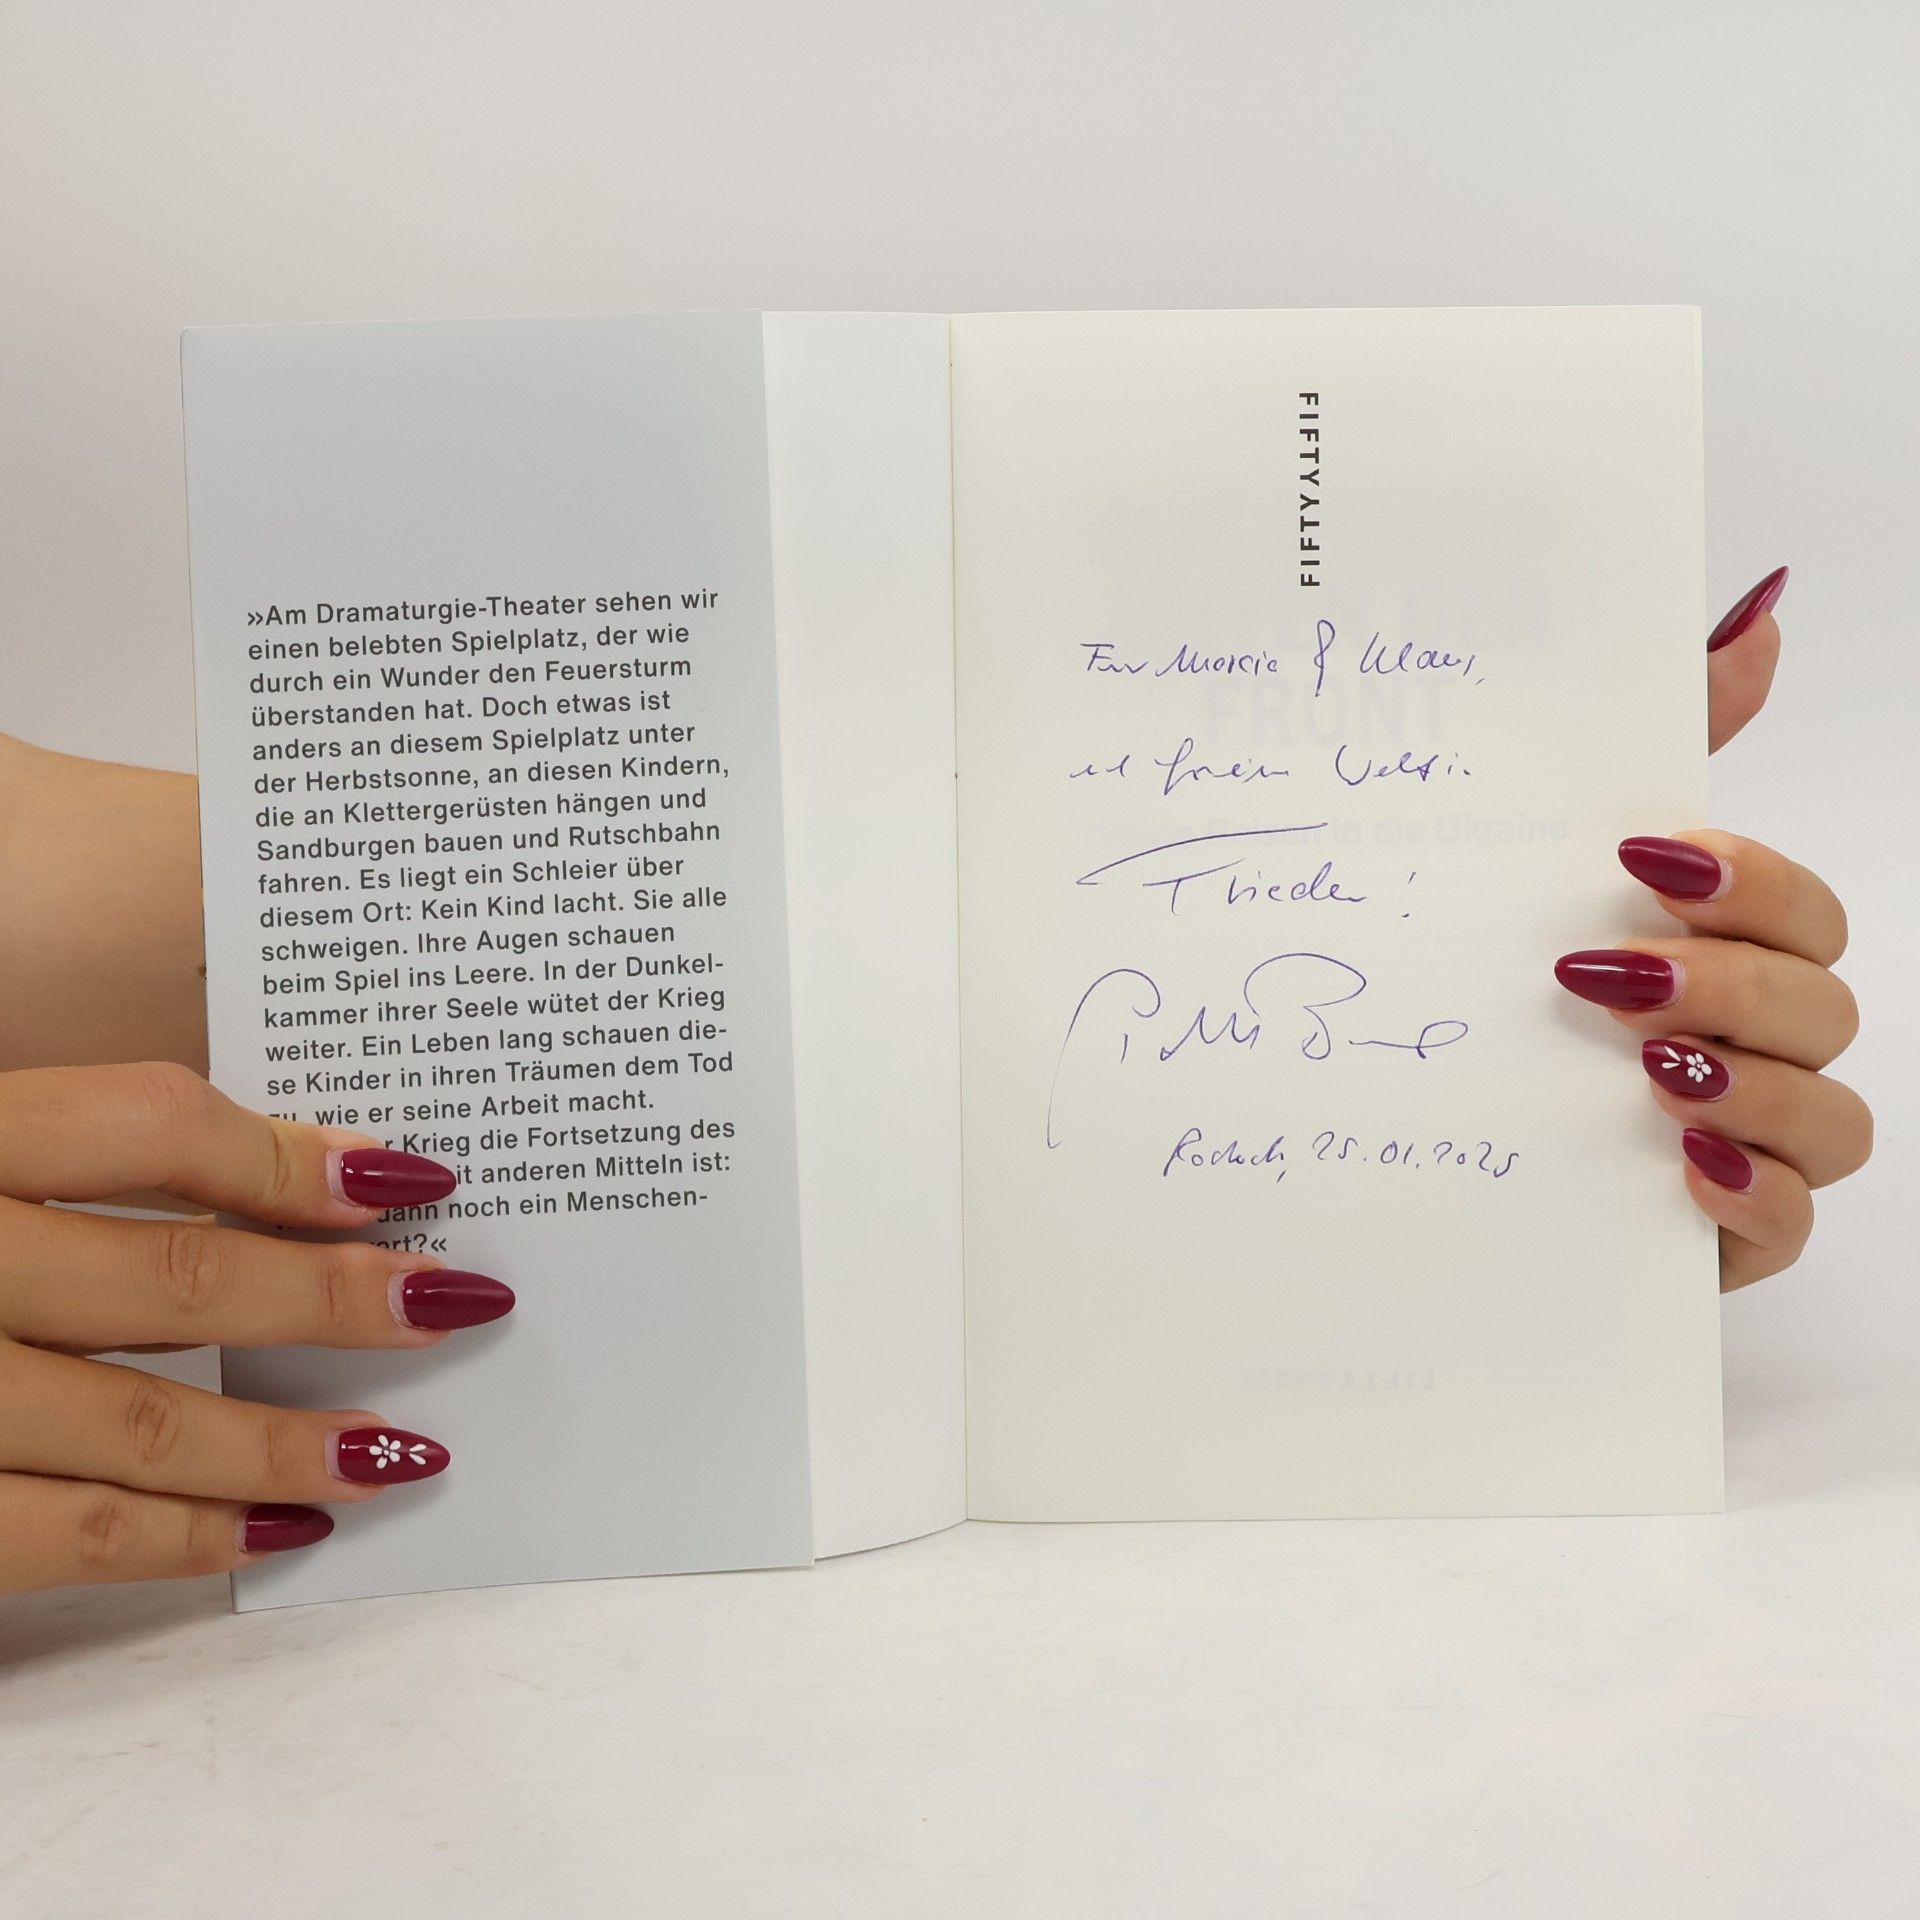 »Am Dramaturgie-Theater sehen wir
einen belebten Spielplatz, der wie
durch ein Wunder den Feuersturm
überstanden hat. Doch etwas ist
anders an diesem Spielplatz unter
der Herbstsonne, an diesen Kindern,
die an Klettergerüsten hängen und
Sandburgen bauen und Rutschbahn
fahren. Es liegt ein Schleier über
diesem Ort: Kein Kind lacht. Sie alle
schweigen. Ihre Augen schauen
beim Spiel ins Leere. In der Dunkel-
kammer ihrer Seele wütet der Krieg
weiter. Ein Leben lang schauen die-
se Kinder in ihren Träumen dem Tod
wie er seine Arbeit macht.
Krieg die Fortsetzung des
anderen Mitteln ist:
dann noch ein Menschen-
FIFTYFIFTY
Für &  Klaus,
Frieden!
25.01.2025
FRONT
Reisen in die Ukraine